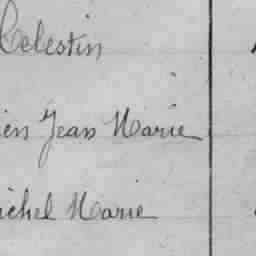 Celestin
ien Jean Marie
ichel Marie